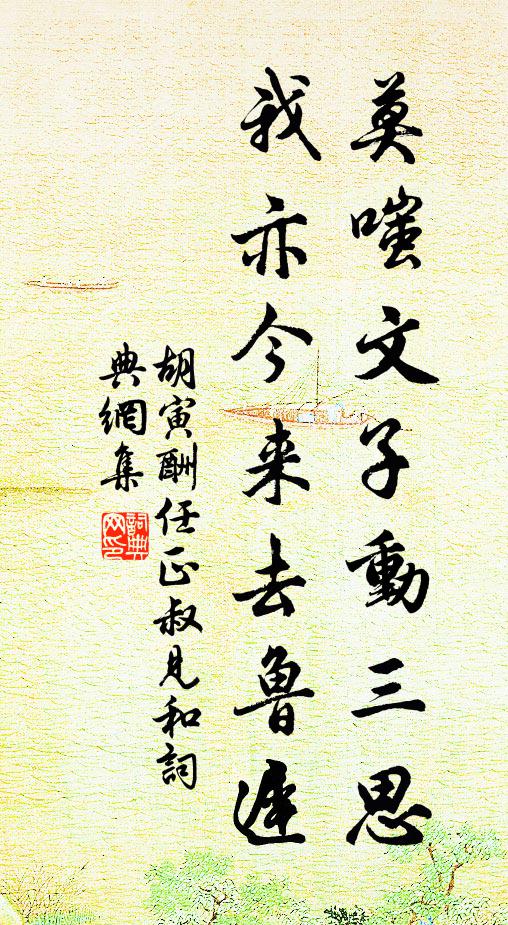 莫嗤文子動三思
我亦今来去魯遲
胡寅酬任正叔見和詞
典網集
詞典
网印